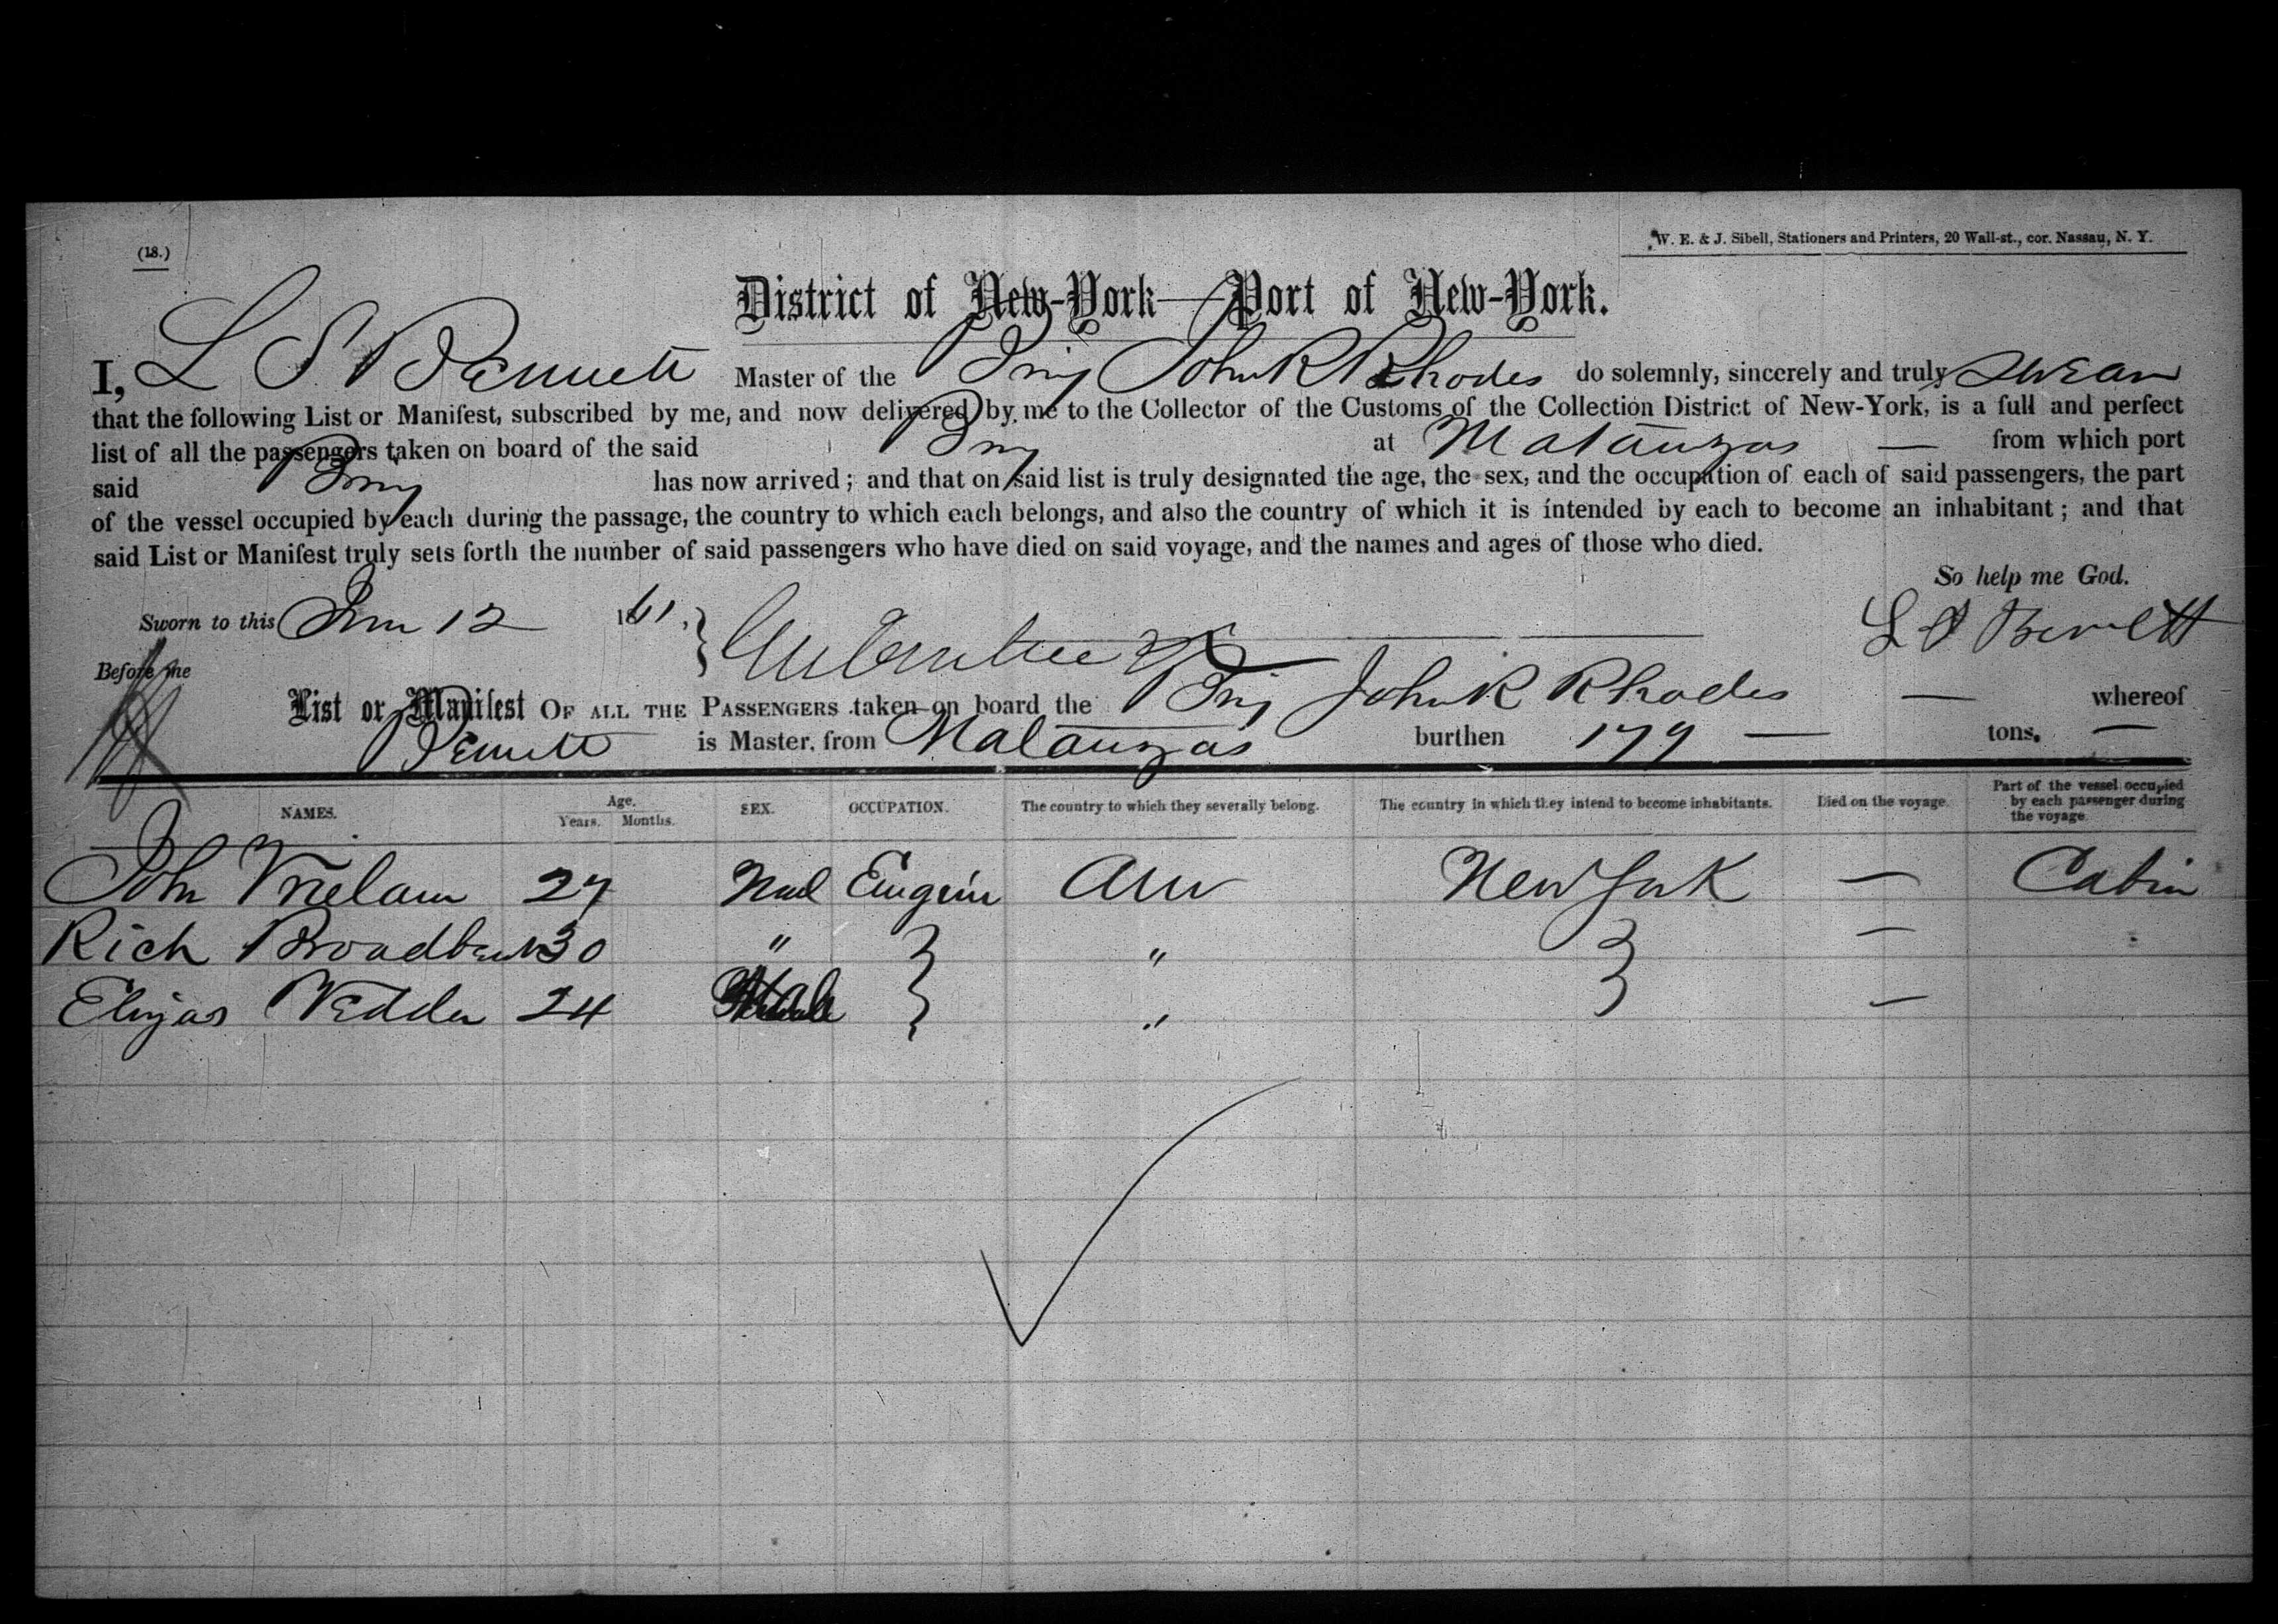 (18.)
W. E. & J. Sibell, Stationers and Printers, 20 Wall-st., cor. Nassau, N. Y.
District of New-York—Port of New-York.
I, L S Bennett Master of the Brig John R Rhodes do solemnly, sincerely and truly swear
that the following List or Manifest, subscribed by me, and now delivered by me to the Collector of the Customs of the Collection District of New-York, is a full and perfect
list of all the passengers taken on board of the said Brig at Matanzas — from which port
said Brig has now arrived; and that on said list is truly designated the age, the sex, and the occupation of each of said passengers, the part
of the vessel occupied by each during the passage, the country to which each belongs, and also the country of which it is intended by each to become an inhabitant; and that
said List or Manifest truly sets forth the number of said passengers who have died on said voyage, and the names and ages of those who died.
So help me God.
Sworn to this 12 1861,
L S Bennett
Before me
List or Manifest OF ALL THE PASSENGERS taken on board the Brig John R Rhodes — whereof
Bennett is Master, from Matanzas burthen 179 — tons. —
NAMES. Age. Years. Months. SEX. OCCUPATION. The country to which they severally belong. The country in which they intend to become inhabitants. Died on the voyage. Part of the vessel occupied by each passenger during the voyage
John 27 Engin New York — Cabin
Rich 30 " " —
Vedder 24 Male " —